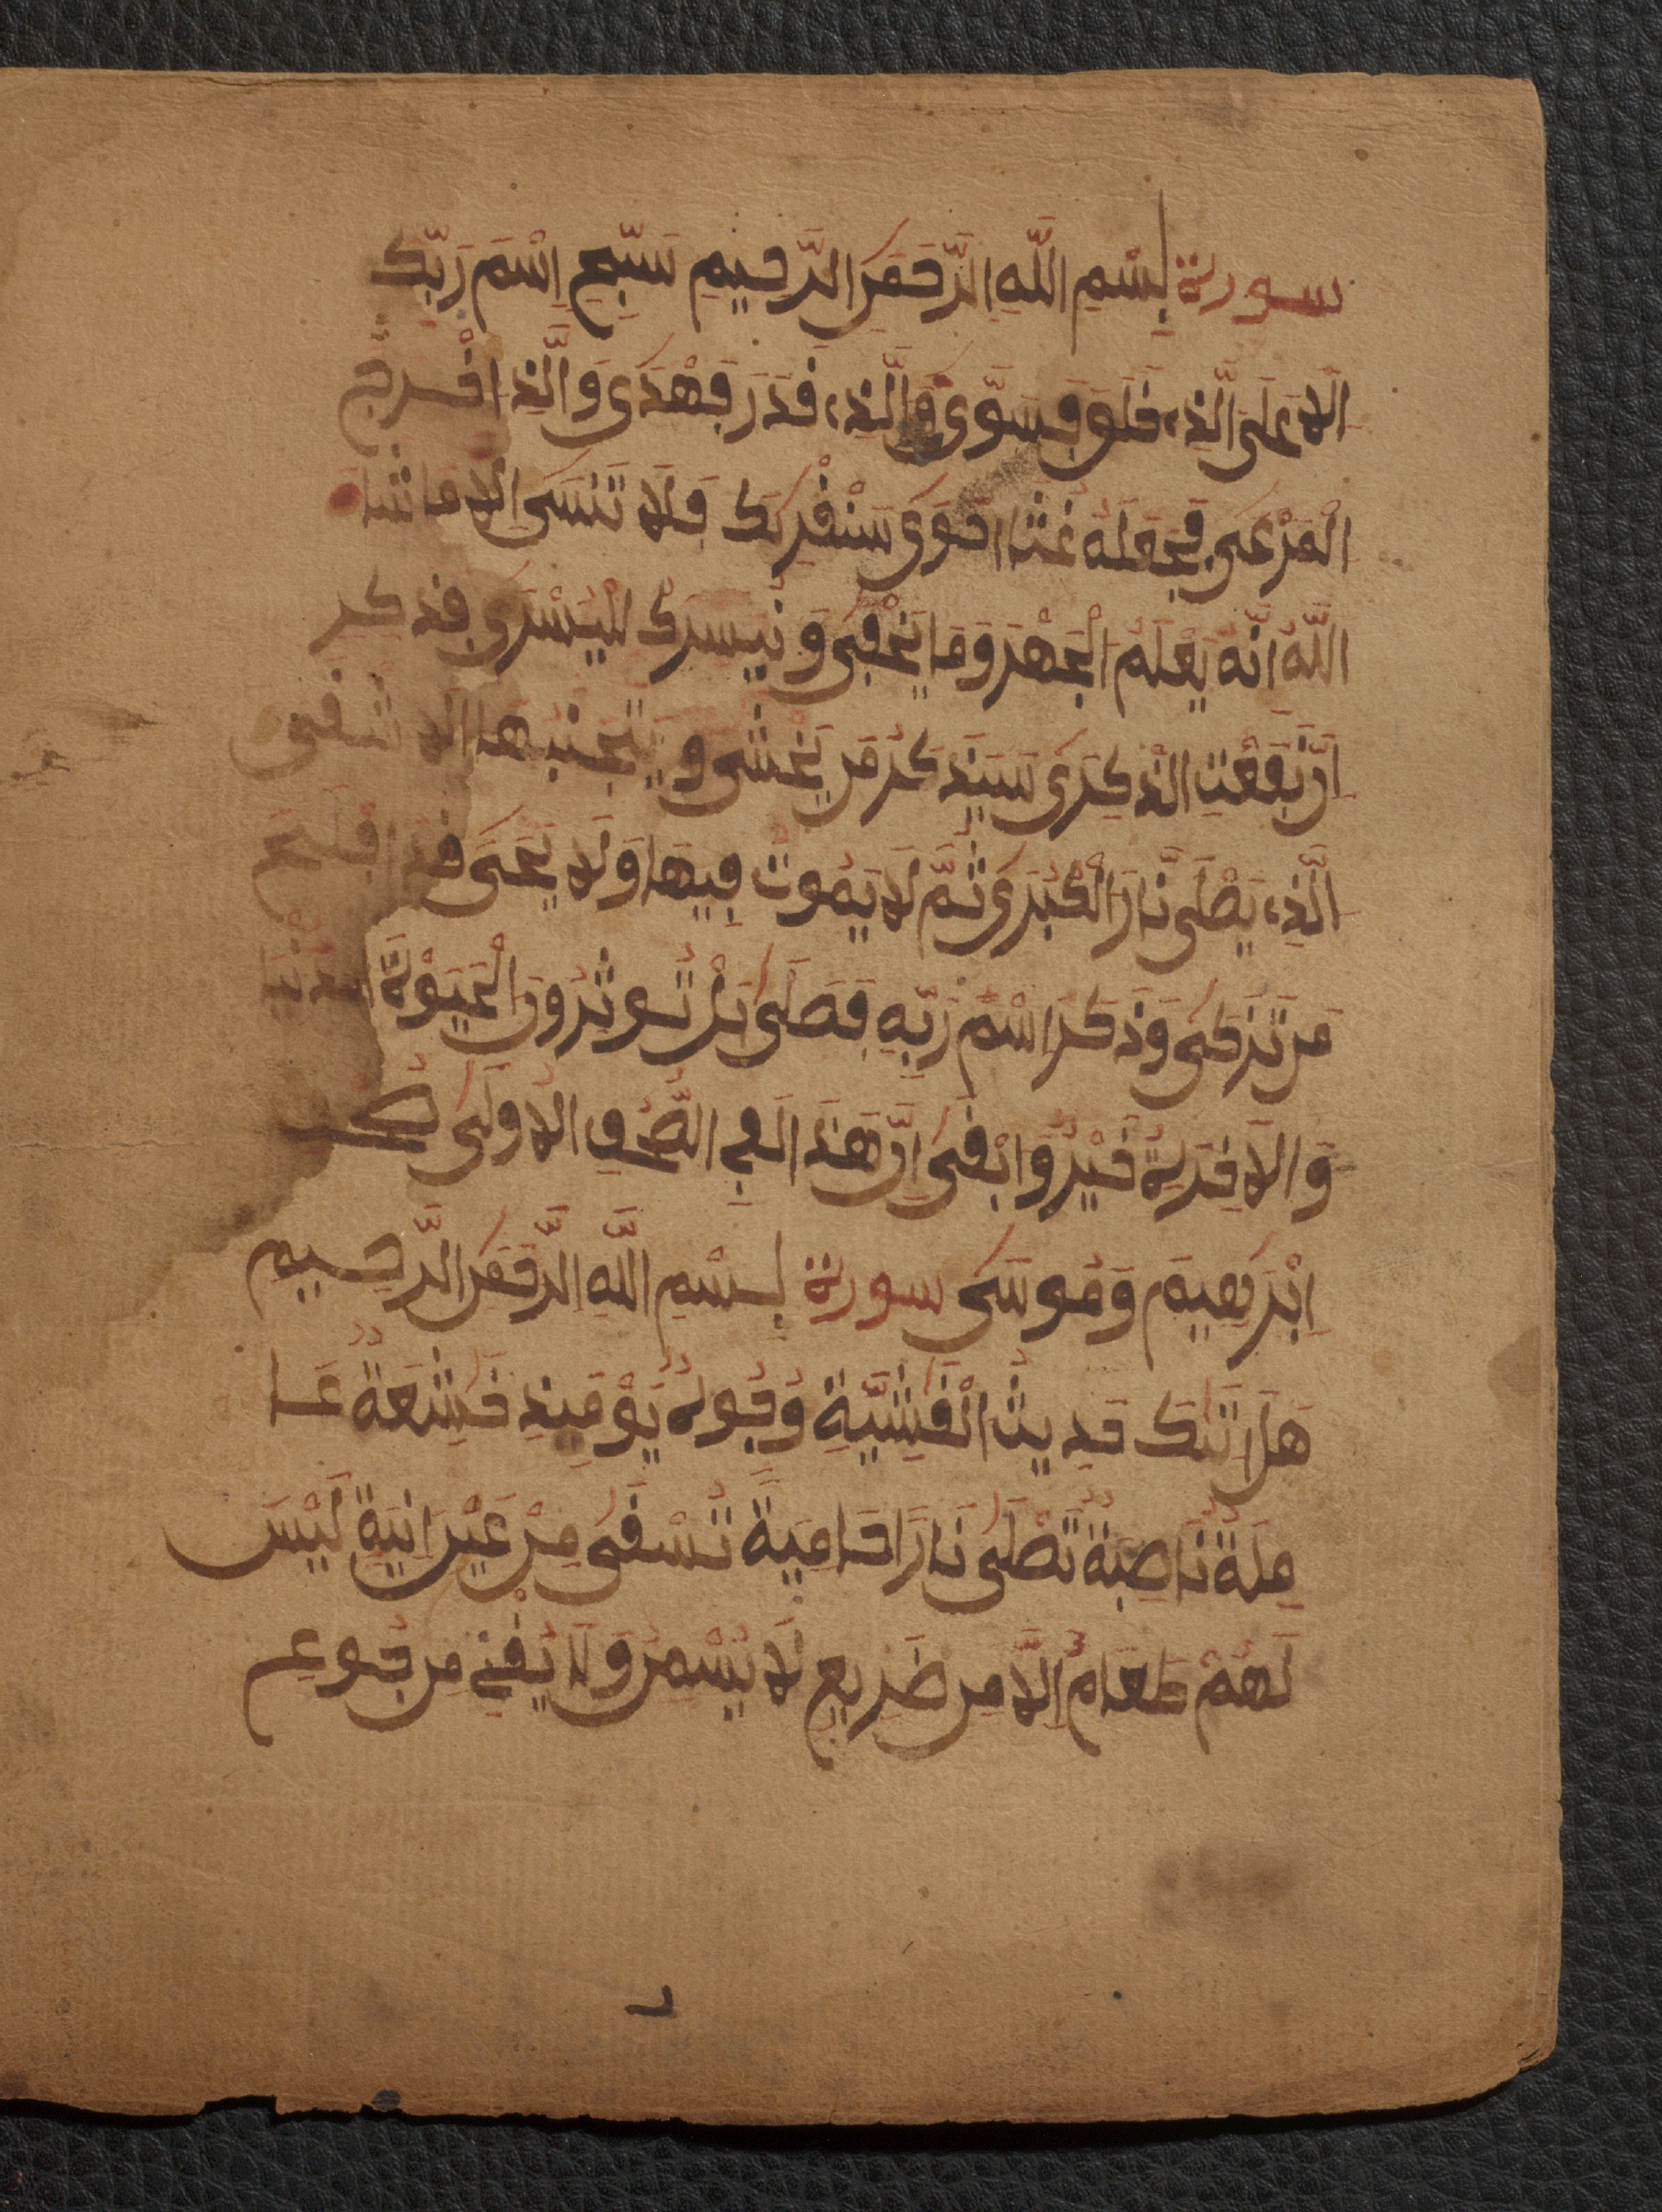 سورة بِسْمِ اللَّهِ الرَّحْمَنِ الرَّحِيمِ سَبِّحِ اِسْمَ رَبِّكَ
الَاعْلَى الَّذِے خَلَقَ فَسَوَّى وَالَّذِے قَدَّرَ فَهَدَى وَالَّذِے أَخْرَجَ
الْمَرْعَى فَجَعَلَهُ غُثَاءً احْوَى سَنُقْرِئُكَ فَلَا تَنسَى إِلَّا مَا شَاءَ
اللَّهُ إِنَّهُ يَعْلَمُ الْجَهْرَ وَمَا يَخْفَى وَنُيَسِّرُكَ لِلْيُسْرَى فَذَكِّرِ
إِن نَّفَعَتِ الذِّكْرَى سَيَذَّكَّرُ مَن يَخْشَى وَيَتَجَنَّبُهَا الَاشْقَى
الَّذِے يَصْلَى النَّارَ الْكُبْرَى ثُمَّ لَا يَمُوتُ فِيهَا وَلَا يَحْيَى قَدَ افْلَحَ
مَن تَزَكَّى وَذَكَرَ اسْمَ رَبِّهِ فَصَلَّى بَلْ تُوثِرُونَ الْحَيَوٰةَ الدُّنْيَا
وَالَاخِرَةُ خَيْرٌ وَأَبْقَى إِنَّ هَذَا لَفِے الصُّحُفِ الُاولَى صُحُفِ
إِبْرَهِيمَ وَمُوسَى سورة بِسْمِ اللَّهِ الرَّحْمَنِ الرَّحِيمِ
هَلَ اتَىٰكَ حَدِيثُ الْغَٰشِيَةِ وُجُوهٌ يَوْمَئِذٍ خَٰشِعَةٌ عَا
مِلَةٌ نَّاصِبَةٌ تَصْلَى نَارًا حَامِيَةً تُسْقَى مِنْ عَيْنٍ اٰنِيَةٍ لَّيْسَ
لَهُمْ طَعَامٌ إِلَّا مِن ضَرِيعٍ لَّا يُسْمِنُ وَلَا يُغْنِے مِن جُوعٍ